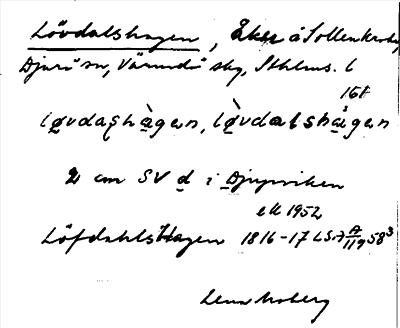 Lövdalshagen, Eker å Sollenkroka
Djurö sn, Värmdö skg, Sthlms. l
168
løvdashàgan, lòvdalshàgan
2 cm SV d i Djupviken
ek 1952
Löfdahlshagen 1816-17 LSA A 119 58³
Lena Moberg